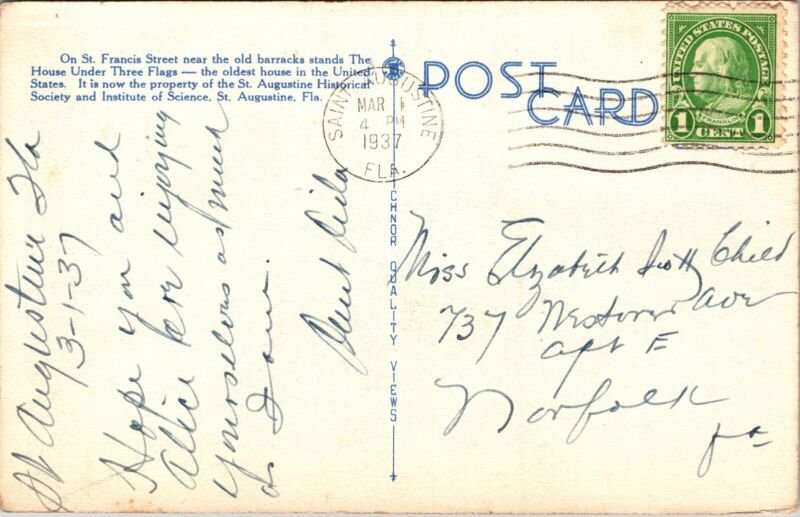 On St. Francis Street near the old barracks stands The
House Under Three Flags — the oldest house in the United
States. It is now the property of the St. Augustine Historical
Society and Institute of Science, St. Augustine, Fla.
POST
CARD
SAINT AUGUSTINE
MAR 1
4 PM
1937
FLA.
UNITED STATES POSTAGE
FRANKLIN
1 CENT 1
TICHNOR QUALITY VIEWS
St Augustine Fla
3-1-37
Hope you and
Alice are enjoying
yourselves as much
as I am.
Aunt Lila
Miss Elizabeth Scott Child
737 Westover Ave
Apt E
Norfolk
Va